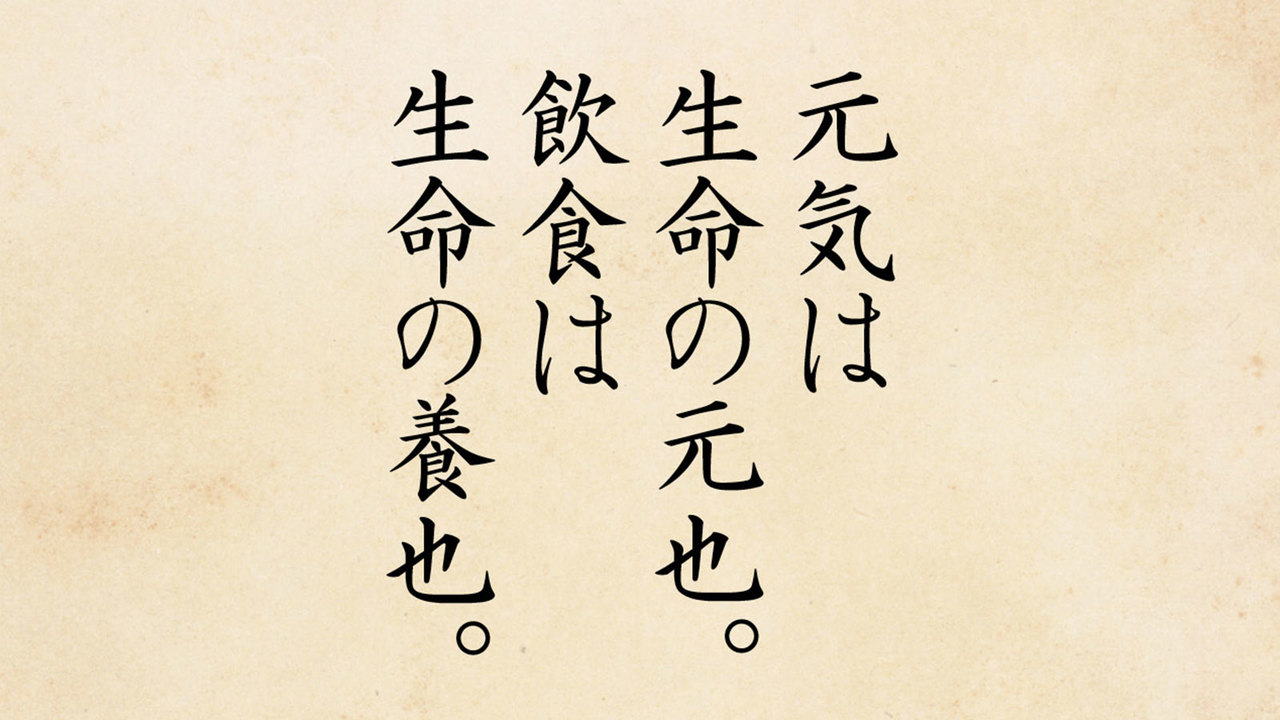 元気は
生命の元也。
飲食は
生命の養也。